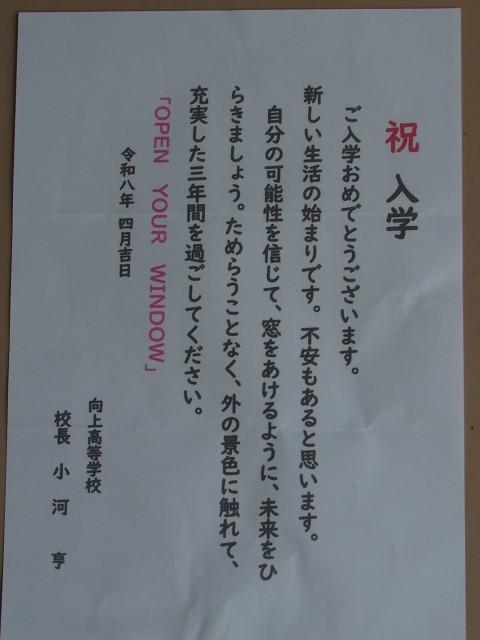 祝 入学
ご入学おめでとうございます。
新しい生活の始まりです。不安もあると思います。
自分の可能性を信じて、窓をあけるように、未来をひ
らきましょう。ためらうことなく、外の景色に触れて、
充実した三年間を過ごしてください。
「OPEN YOUR WINDOW」
令和八年 四月吉日
向上高等学校
校長 小河 亨